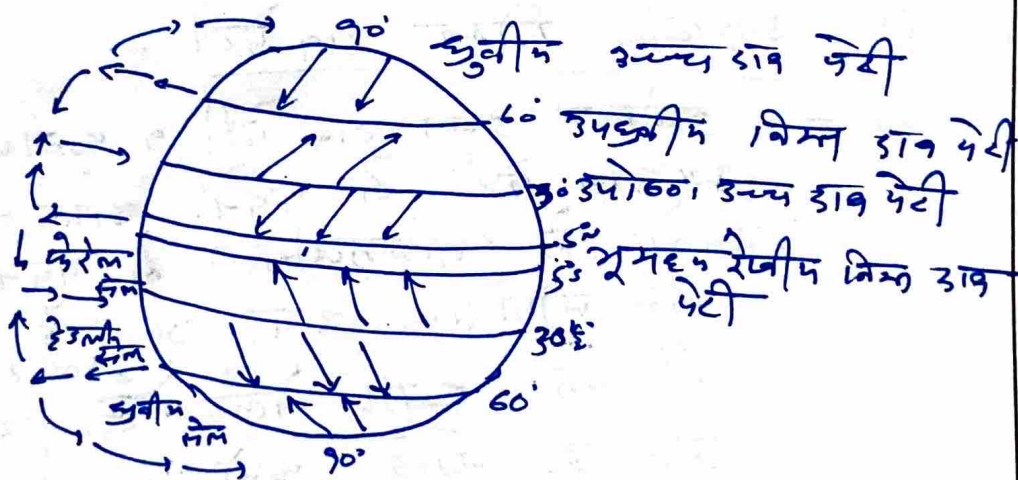 90°
ध्रुवीय उच्च दाब पेटी
60° उपध्रुवीय निम्न दाब पेटी
30° उपोष्ण उच्च दाब पेटी
5°N
5°S भूमध्य रेखीय निम्न दाब
पेटी
फेरेल
सेल
30°
हेडली
सेल
60°
ध्रुवीय
सेल
90°